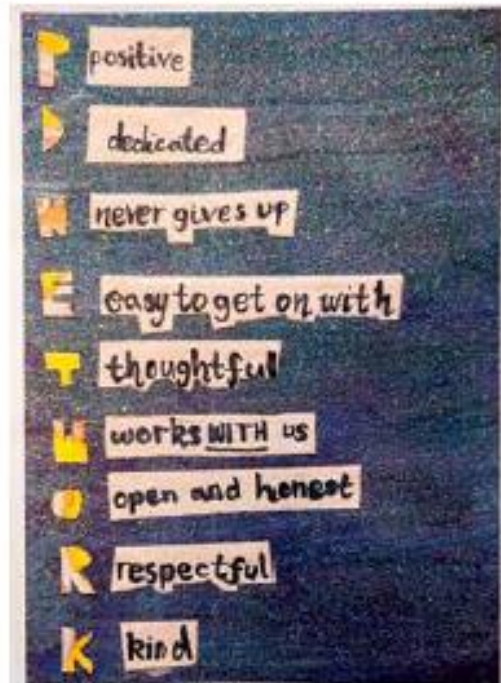 P positive
D dedicated
N never gives up
E easy to get on with
T thoughtful
W works WITH us
O open and honest
R respectful
K kind